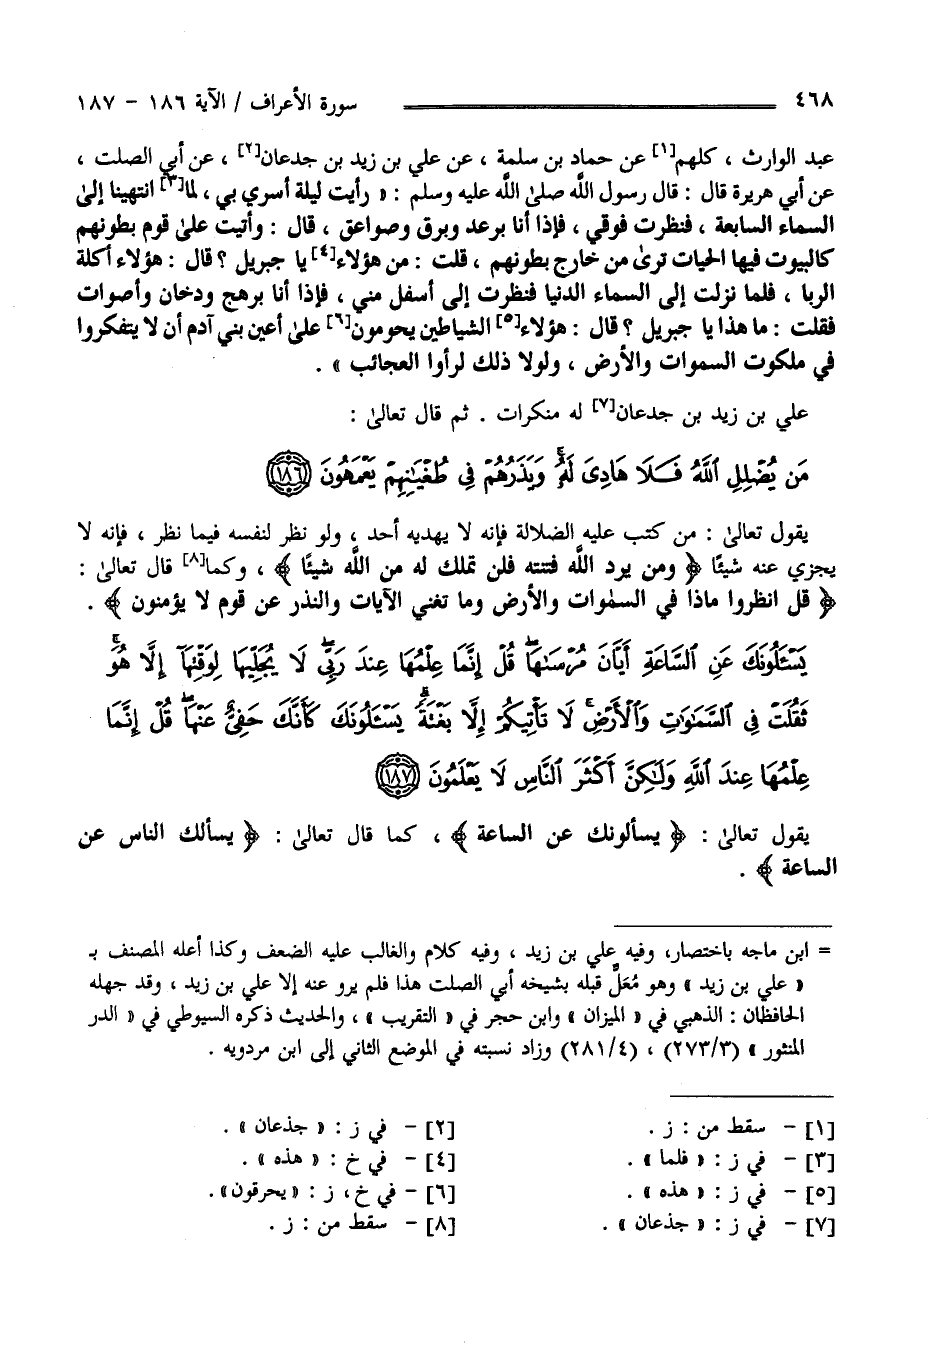 ٤٦٨ سورة الأعراف / الآية ١٨٦ - ١٨٧
عبد الوارث ، كلهم[١] عن حماد بن سلمة ، عن علي بن زيد بن جدعان[٢] ، عن أبي الصلت ،
عن أبي هريرة قال : قال رسول الله صلىٰ الله عليه وسلم : « رأيت ليلة أسري بي ، لما[٣] انتهينا إلىٰ
السماء السابعة ، فنظرت فوقي ، فإذا أنا برعد وبرق وصواعق ، قال : وأتيت علىٰ قوم بطونهم
كالبيوت فيها الحيات ترىٰ من خارج بطونهم ، قلت : من هؤلاء[٤] يا جبريل ؟ قال : هؤلاء أكلة
الربا ، فلما نزلت إلى السماء الدنيا فنظرت إلى أسفل مني ، فإذا أنا برهج ودخان وأصوات
فقلت : ما هذا يا جبريل ؟ قال : هؤلاء[٥] الشياطين يحومون[٦] علىٰ أعين بني آدم أن لا يتفكروا
في ملكوت السموات والأرض ، ولولا ذلك لرأوا العجائب » .
علي بن زيد بن جدعان[٧] له منكرات . ثم قال تعالىٰ :
مَن يُضْلِلِ ٱللَّهُ فَلَا هَادِىَ لَهُۥ ۚ وَيَذَرُهُمْ فِى طُغْيَـٰنِهِمْ يَعْمَهُونَ ١٨٦
يقول تعالىٰ : من كتب عليه الضلالة فإنه لا يهديه أحد ، ولو نظر لنفسه فيما نظر ، فإنه لا
يجزي عنه شيئًا ﴿ ومن يرد الله فتنته فلن تملك له من الله شيئًا ﴾ ، وكما[٨] قال تعالىٰ :
﴿ قل انظروا ماذا في السمٰوات والأرض وما تغني الآيات والنذر عن قوم لا يؤمنون ﴾ .
يَسْـَٔلُونَكَ عَنِ ٱلسَّاعَةِ أَيَّانَ مُرْسَىٰهَا ۖ قُلْ إِنَّمَا عِلْمُهَا عِندَ رَبِّى ۖ لَا يُجَلِّيهَا لِوَقْتِهَآ إِلَّا هُوَ ۚ
ثَقُلَتْ فِى ٱلسَّمَـٰوَٰتِ وَٱلْأَرْضِ ۚ لَا تَأْتِيكُمْ إِلَّا بَغْتَةً ۗ يَسْـَٔلُونَكَ كَأَنَّكَ حَفِىٌّ عَنْهَا ۖ قُلْ إِنَّمَا
عِلْمُهَا عِندَ ٱللَّهِ وَلَـٰكِنَّ أَكْثَرَ ٱلنَّاسِ لَا يَعْلَمُونَ ١٨٧
يقول تعالىٰ : ﴿ يسألونك عن الساعة ﴾ ، كما قال تعالىٰ : ﴿ يسألك الناس عن
الساعة ﴾ .
= ابن ماجه باختصار، وفيه علي بن زيد ، وفيه كلام والغالب عليه الضعف وكذا أعله المصنف بـ
« علي بن زيد » وهو مُعَلٌّ قبله بشيخه أبي الصلت هذا فلم يرو عنه إلا علي بن زيد ، وقد جهله
الحافظان : الذهبي في « الميزان » وابن حجر في « التقريب » ، والحديث ذكره السيوطي في « الدر
المنثور » (٢٧٣/٣) ، (٢٨١/٤) وزاد نسبته في الموضع الثاني إلى ابن مردويه .
[١] - سقط من : ز . [٢] - في ز : « جذعان » .
[٣] - في ز : « فلما » . [٤] - في خ : « هذه » .
[٥] - في ز : « هذه » . [٦] - في خ، ز : «يحرقون» .
[٧] - في ز : « جذعان » . [٨] - سقط من : ز .